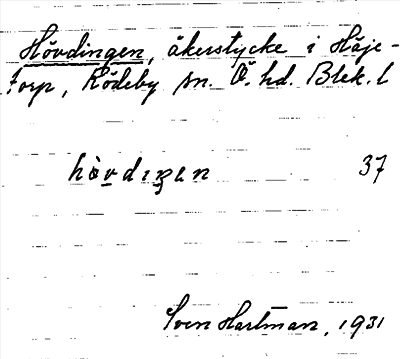 Hövdingen, åkerstycke i Häje-
torp, Rödeby sn. Ö. hd. Blek. l
hövdıŋen 37
Sven Hartman, 1931